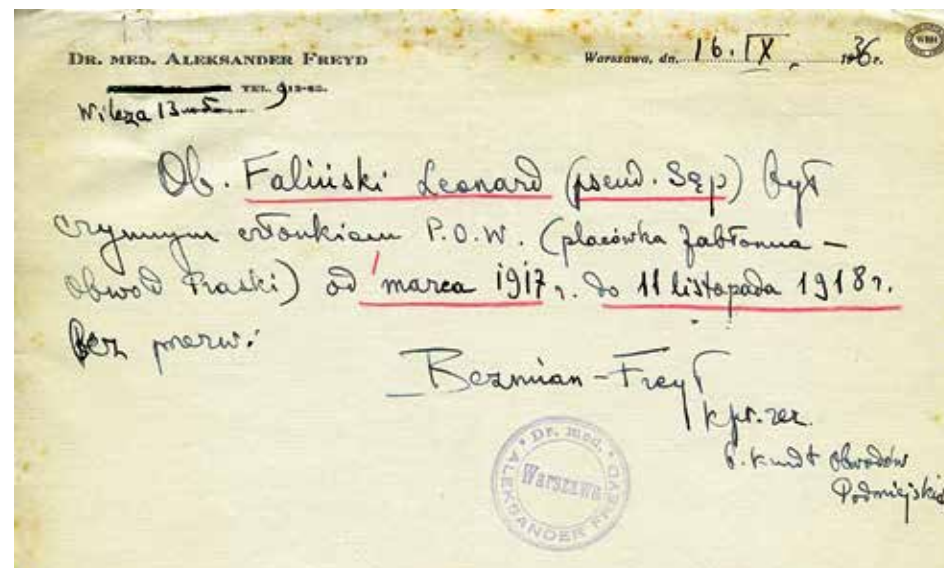 DR. MED. ALEKSANDER FREYD
Warszawa, dn. 16. IX. 1936 r.
TEL.
Wilcza 13
Ob. Faliński Leonard (pseud. Sęp) był
czynnym członkiem P.O.W. (placówka Jabłonna –
Obwód Praski) od marca 1917 r. do 11 listopada 1918 r.
bez przerwi
Bezmian-Freyd
kpt. rez.
b. kmdt Obwodów
Podmiejskich
Dr. med.
ALEKSANDER FREYD
Warszawa
WBH